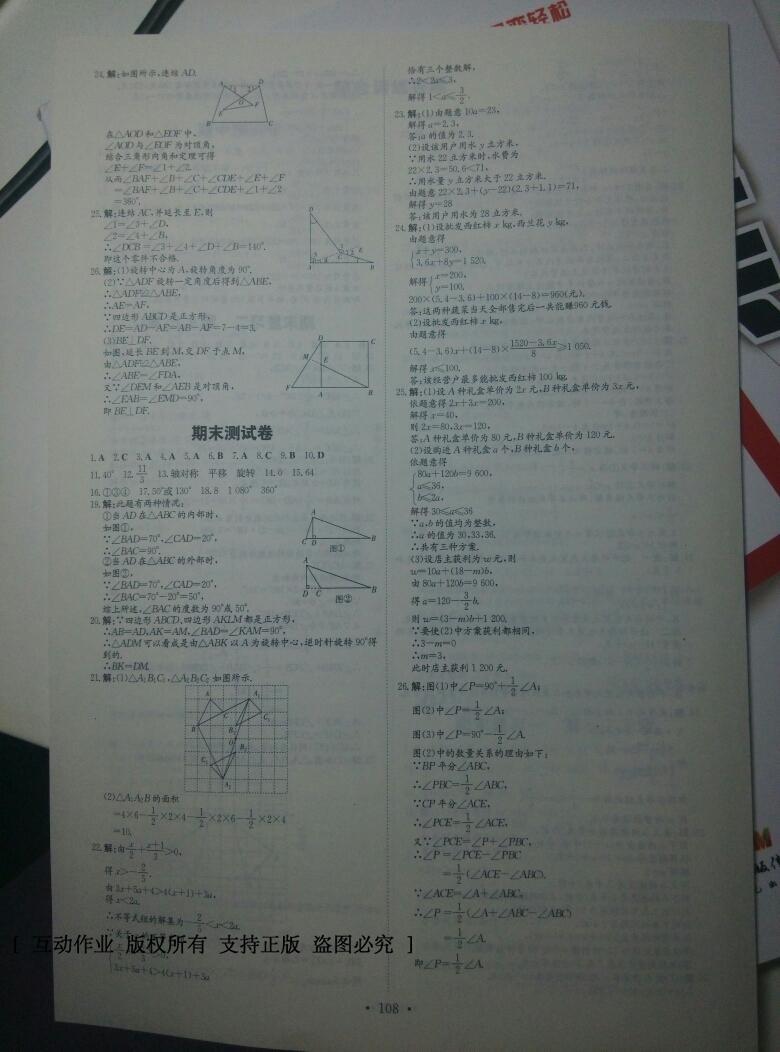 变轻松
24.解:如图所示,连结 AD.
在△AOD 和△EOF 中,
∠AOD 与∠EOF 为对顶角,
结合三角形内角和定理可得
∠E+∠F=∠1+∠2.
从而∠BAF+∠B+∠C+∠CDE+∠E+∠F
=∠BAF+∠B+∠C+∠CDE+∠1+∠2
=360°.
25.解:连结 AC,并延长至 E,则
∠1=∠3+∠D,
∠2=∠4+∠B,
∴∠DCB=∠3+∠4+∠D+∠B=140°.
即这个零件不合格.
26.解:(1)旋转中心为 A,旋转角度为 90°.
(2)∵△ADF 旋转一定角度后得到△ABE,
∴△ADF≌△ABE,
∴AE=AF,
∵四边形 ABCD 是正方形,
∴DE=AD-AE=AB-AF=7-4=3.
(3)BE⊥DF.
如图,延长 BE 到 M,交 DF 于点 M,
由△ADF≌△ABE,
∴∠ABE=∠FDA,
又∵∠DEM 和∠AEB 是对顶角,
∴∠EAB=∠EMD=90°,
即 BE⊥DF.
期末测试卷
1.A 2.C 3.A 4.A 5.A 6.B 7.A 8.C 9.B 10.D
11.40° 12.11/3 13.轴对称 平移 旋转 14.6 15.64
16.①③④ 17.50°或 130° 18.8 1 080° 360°
19.解:此题有两种情况:
①当 AD 在△ABC 的内部时,
如图①,
∵∠BAD=70°,∠CAD=20°,
∴∠BAC=90°.
图①
②当 AD 在△ABC 的外部时,
如图②,
∵∠BAD=70°,∠CAD=20°,
∴∠BAC=70°-20°=50°,
图②
综上所述,∠BAC 的度数为 90°或 50°.
20.解:∵四边形 ABCD,四边形 AKLM 都是正方形,
∴AB=AD,AK=AM,∠BAD=∠KAM=90°,
∴△ADM 可以看成是由△ABK 以 A 为旋转中心,逆时针旋转 90°得
到的.
∴BK=DM.
21.解:(1)△A₁B₁C₁,△A₂B₂C₂ 如图所示.
(2)△A₁A₂B 的面积
=4×6-1/2×2×4-1/2×2×6-1/2×2×4
=10.
22.解:由x/2+(x+1)/3>0,
得 x>-2/5.
由 3x+5a+4>4(x+1)+3a,
得 x<2a.
∴不等式组的解集为-2/5<x<2a.
[ 互动作业 版权所有 支持正版 盗图必究 ]
3x+5a+4>4(x+1)+3a
恰有三个整数解,
∴2<2a≤3,
解得 1<a≤3/2.
23.解:(1)由题意 10a=23,
解得 a=2.3,
答:a 的值为 2.3.
(2)设该用户用水 y 立方米,
∵用水 22 立方米时,水费为
22×2.3=50.6<71,
∴用水量 y 立方米大于 22 立方米.
由题意 22×2.3+(y-22)(2.3+1.1)=71,
解得 y=28
答:该用户用水为 28 立方米.
24.解:(1)设批发西红柿 x kg,西兰花 y kg,
由题意得
x+y=300,
3.6x+8y=1 520.
解得 x=200,
y=100.
200×(5.4-3.6)+100×(14-8)=960(元).
答:这两种蔬菜当天全部售完后一共能赚960 元钱.
(2)设批发西红柿 x kg,
由题意得
(5.4-3.6)x+(14-8)×(1520-3.6x)/8≥1 050.
解得 x≤100.
答:该经营户最多能批发西红柿 100 kg.
25.解:(1)设 A 种礼盒单价为 2x 元,B 种礼盒单价为 3x 元,
依题意得 2x+3x=200,
解得 x=40,
则 2x=80,3x=120,
答:A 种礼盒单价为 80 元,B 种礼盒单价为 120 元.
(2)设购进 A 种礼盒 a 个,B 种礼盒 b 个,
依题意得
80a+120b=9 600,
a≤36,
b≤2a,
解得 30≤a≤36
∵a,b 的值均为整数,
∴a 的值为 30,33,36.
∴共有三种方案.
(3)设店主获利为 w 元,则
w=10a+(18-m)b,
由 80a+120b=9 600,
得 a=120-3/2b,
则 w=(3-m)b+1 200,
∵要使(2)中方案获利都相同,
∴3-m=0
∴m=3,
此时店主获利 1 200 元.
26.解:图(1)中∠P=90°+1/2∠A;
图(2)中∠P=1/2∠A;
图(3)中∠P=90°-1/2∠A.
图(2)中的数量关系的理由如下:
∵BP 平分∠ABC,
∴∠PBC=1/2∠ABC,
∵CP 平分∠ACE,
∴∠PCE=1/2∠ACE,
又∵∠PCE=∠P+∠PBC,
∴∠P=∠PCE-∠PBC
=1/2(∠ACE-∠ABC).
∵∠ACE=∠A+∠ABC,
∴∠P=1/2(∠A+∠ABC-∠ABC)
=1/2∠A.
即∠P=1/2∠A.
· 108 ·